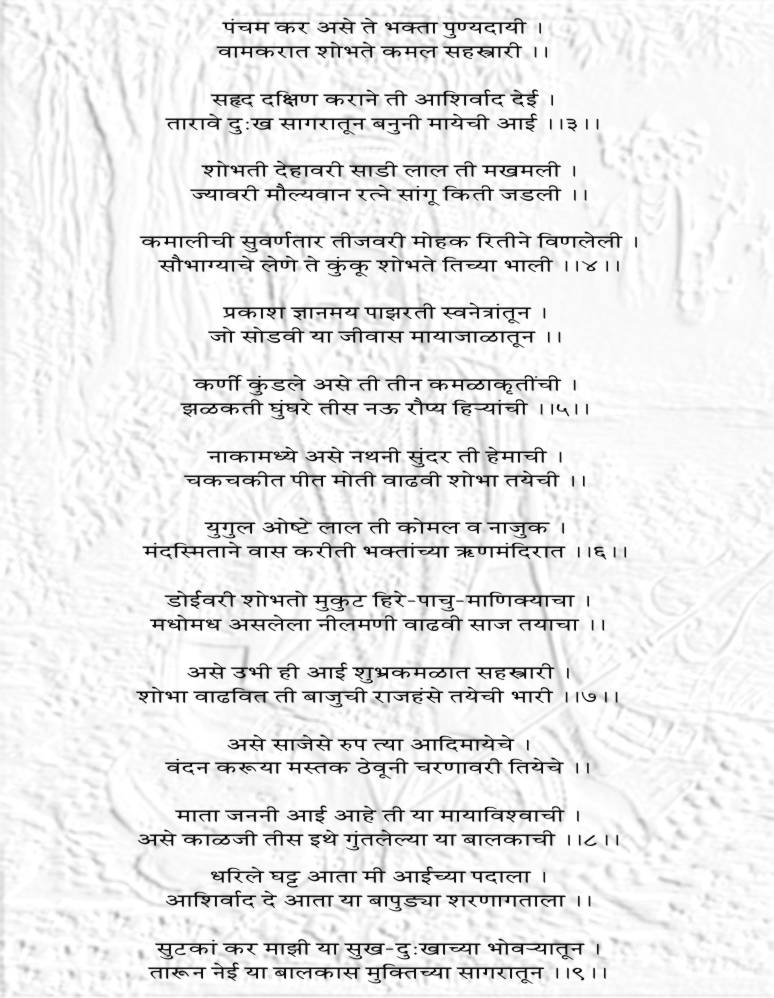 पंचम कर असे ते भक्ता पुण्यदायी ।
वामकरात शोभते कमल सहस्त्रारी ।।
सहृद दक्षिण कराने ती आशिर्वाद देई ।
तारावे दुःख सागरातून बनुनी मायेची आई ।।३।।
शोभती देहावरी साडी लाल ती मखमली ।
ज्यावरी मौल्यवान रत्ने सांगू किती जडली ।।
कमालीची सुवर्णतार तीजवरी मोहक रितीने विणलेली ।
सौभाग्याचे लेणे ते कुंकू शोभते तिच्या भाली ।।४।।
प्रकाश ज्ञानमय पाझरती स्वनेत्रांतून ।
जो सोडवी या जीवास मायाजाळातून ।।
कर्णी कुंडले असे ती तीन कमळाकृतींची ।
झळकती घुंघरे तीस नऊ रौप्य हिऱ्यांची ।।५।।
नाकामध्ये असे नथनी सुंदर ती हेमाची ।
चकचकीत पीत मोती वाढवी शोभा तयेची ।।
युगुल ओष्टे लाल ती कोमल व नाजुक ।
मंदस्मिताने वास करीती भक्तांच्या ऋणमंदिरात ।।६।।
डोईवरी शोभतो मुकुट हिरे-पाचु-माणिक्याचा ।
मधोमध असलेला नीलमणी वाढवी साज तयाचा ।।
असे उभी ही आई शुभ्रकमळात सहस्त्रारी ।
शोभा वाढवित ती बाजुची राजहंसे तयेची भारी ।।७।।
असे साजेसे रुप त्या आदिमायेचे ।
वंदन करूया मस्तक ठेवूनी चरणावरी तियेचे ।।
माता जननी आई आहे ती या मायाविश्वाची ।
असे काळजी तीस इथे गुंतलेल्या या बालकाची ।।८।।
धरिले घट्ट आता मी आईच्या पदाला ।
आशिर्वाद दे आता या बापुड्या शरणागताला ।।
सुटकां कर माझी या सुख-दुःखाच्या भोवऱ्यातून ।
तारून नेई या बालकास मुक्तिच्या सागरातून ।।९।।